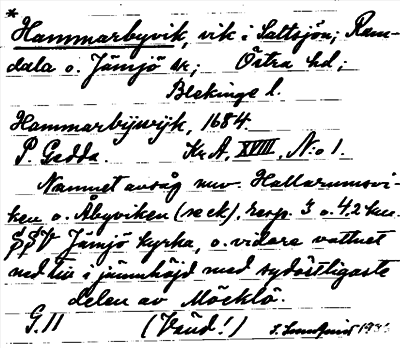 *
Hammarbyvik, vik i Saltsjön; Ram-
dala o. Jämjö sr; Östra hd;
Blekinge l.
Hammarbijwijk, 1684.
P. Gedda. Kr.A, XVIII, N:o 1.
Namnet avsåg nuv. Hallarumsvi-
ken o. Åbyviken (se ek), resp. 3 o. 4,2 km.
Jämjö kyrka, o. vidare vattnet
ned till i jämnhöjd med sydöstligaste
delen av Möcklö.
G. 11 (Vänd!)